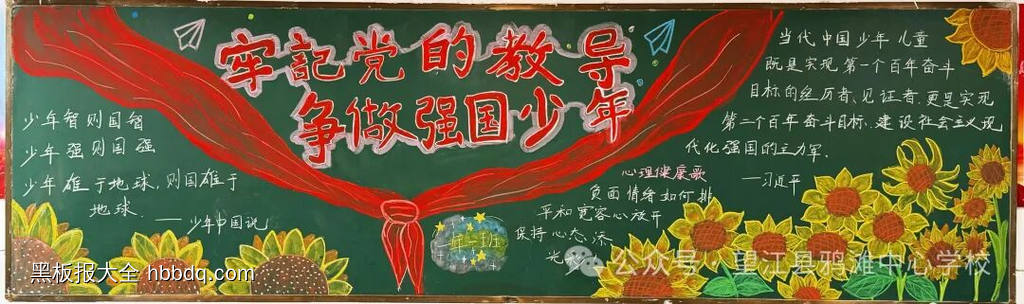 牢記党的教导
争做强国少年
少年智则国智
少年强则国强
少年雄于地球,则国雄于
地球.
——少年中国说!
当代中国少年儿童
既是实现第一个百年奋斗
目标的经历者、见证者,更是实现
第二个百年奋斗目标、建设社会主义现
代化强国的主力军.
——习近平
心理健康歌
负面情绪如何排
平和宽容心放开
保持心态深
光
一年一班
黑板报大全 hbbdq.com
公众号·望江县鸦滩中心学校